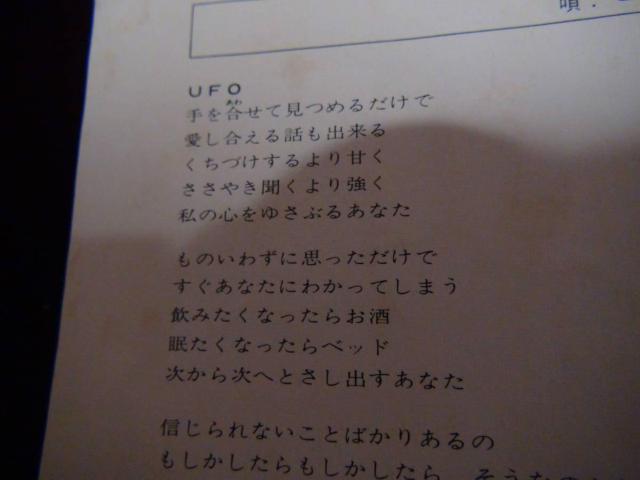 唄:
UFO
手を合せて見つめるだけで
愛し合える話も出来る
くちづけするより甘く
ささやき聞くより強く
私の心をゆさぶるあなた
ものいわずに思っただけで
すぐあなたにわかってしまう
飲みたくなったらお酒
眠たくなったらベッド
次から次へとさし出すあなた
信じられないことばかりあるの
もしかしたらもしかしたら そうなの